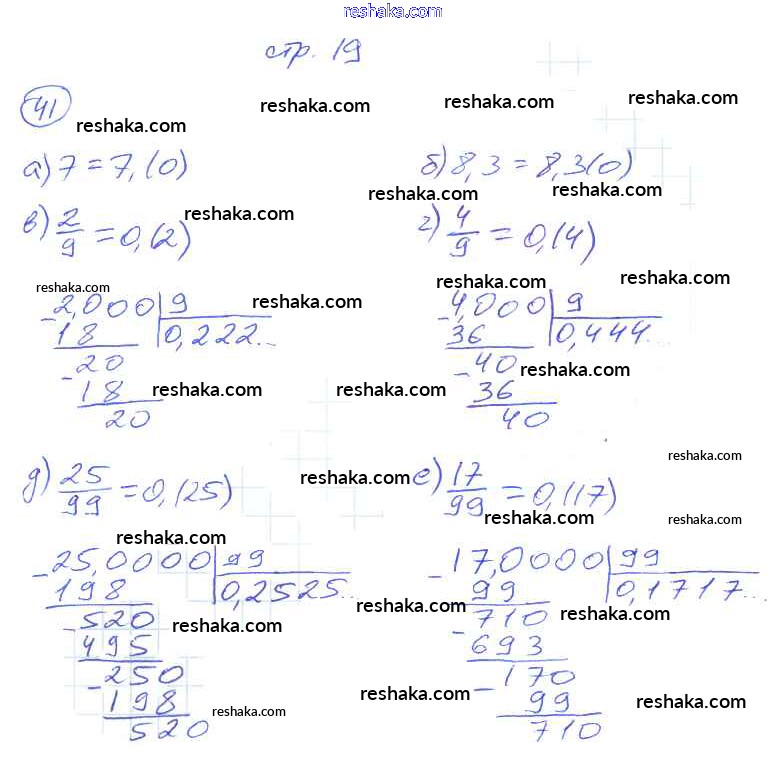 reshaka.com
стр. 19
41
reshaka.com reshaka.com reshaka.com
а) 7 = 7,(0) б) 8,3 = 8,3(0)
reshaka.com reshaka.com
в) 2/9 = 0,(2) г) 4/9 = 0,(4)
reshaka.com
reshaka.com reshaka.com reshaka.com
- 2,000 | 9 - 4,000 | 9
18 0,222... 36 0,444...
- 20 - 40 reshaka.com
18 36
reshaka.com reshaka.com
20 40
reshaka.com
д) 25/99 = 0,(25) е) 17/99 = 0,(17)
reshaka.com
reshaka.com reshaka.com reshaka.com
- 25,0000 | 99 - 17,0000 | 99
198 0,2525... 99 0,1717...
reshaka.com
- 520 - 710 reshaka.com
reshaka.com reshaka.com
495 693
- 250 - 170
198 99
reshaka.com reshaka.com reshaka.com
520 710